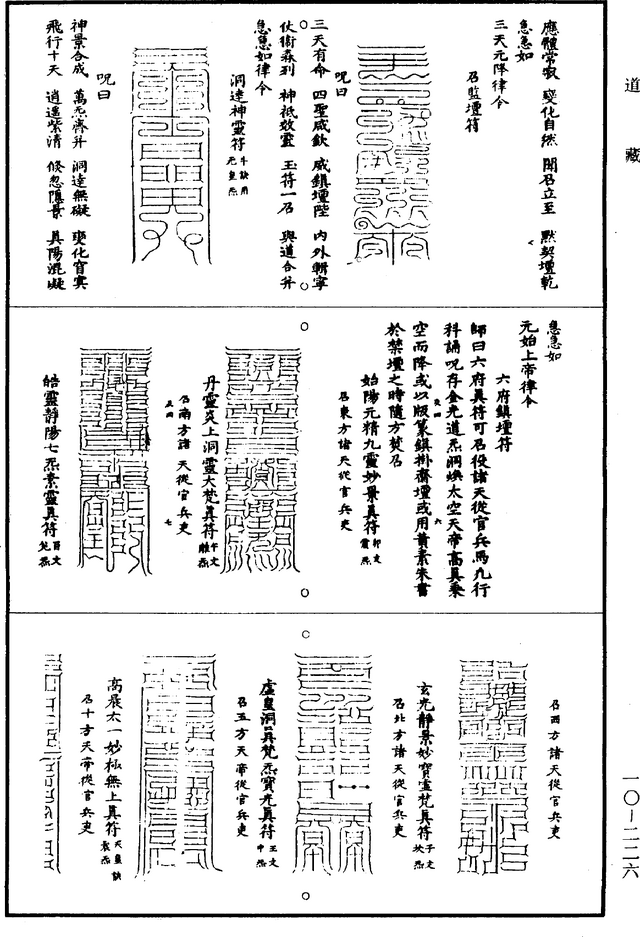 道藏
應體常寂　變化自然　聞召立至　默契壇乾
急急如
三天元降律令
召監壇符
三天有命　四聖咸欽　威鎮壇陛　內外輯寧
呪曰
仗衛森列　神祇效靈　玉符一召　與道合并
急急如律令
洞達神靈符
斗訣用
元皇炁
呪曰
神景合成　萬炁齊并　洞達無礙　變化窅冥
飛行十天　逍遙紫清　倐忽隱景　真陽混凝
急急如
元始上帝律令
六府鎮壇符
師曰六府真符可召役諸天從官兵馬九行
科誦呪存金光道炁洞煥太空天帝高真乘
空而降或以版篆鎮掛齋壇或用黃素朱書
於禁壇之時隨方焚召
始陽元精九靈妙景真符
卯文
震炁
召東方諸天從官兵吏
丹靈炎上洞靈大梵真符
午文
離炁
召南方諸天從官兵吏
皓靈靜陽七炁素靈真符
酉文
兌炁
召西方諸天從官兵吏
玄光靜景妙寶靈梵真符
子文
坎炁
召北方諸天從官兵吏
虛皇洞真梵炁寶光真符
王文
中炁
召五方天帝從官兵吏
高晨太一妙極無上真符
天皇訣
召十方天帝從官兵吏
一〇—二二六